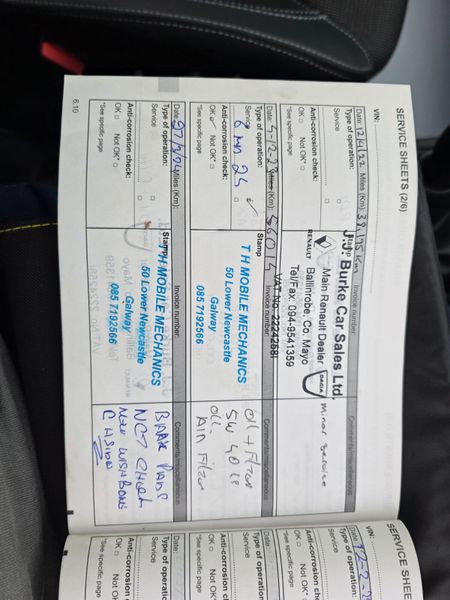 SERVICE SHEETS (2/6)
VIN:
Date: 12/4/22 Miles (Km): Invoice number: Comments/miscellaneous
Type of operation: Stamp
Service
Anti-corrosion check:
OK Not OK*
*See specific page
J. Burke Car Sales Ltd
Main Renault Dealer DACIA
RENAULT Ballinrobe, Co. Mayo
Tel/Fax: 094-9541359
VAT No.
minor service
Date: Miles (Km): Invoice number: Comments/miscellaneous
Type of operation: Stamp
Service
Anti-corrosion check:
OK Not OK*
*See specific page
T H MOBILE MECHANICS
50 Lower Newcastle
Galway
085 7192566
Oil + Filter
5W 40
Oil
Air Filter
Date: Miles (Km): Invoice number: Comments/miscellaneous
Type of operation: Stamp
Service
Anti-corrosion check:
OK Not OK*
*See specific page
T H MOBILE MECHANICS
50 Lower Newcastle
Galway
085 7192566
NCT CHECK
6.10
SERVICE SHEE
VIN:
Date:
Type of operation:
Service
Anti-corrosion
OK Not OK*
*See specific page
Date:
Type of operation:
Service
Anti-corrosion c
OK Not OK
*See specific page
Date:
Type of operation:
Service
Anti-corrosion
OK Not O
*See specific page